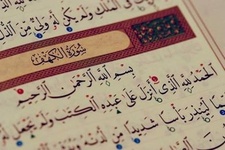 الملك ولم يكن له ولي من الذل
سورة الكهف
بسم الله الرحمن الرحيم
الحمد لله الذي أنزل على عبده الكتب ولم يجعل
لينذر بأسا شديدا من لدنه